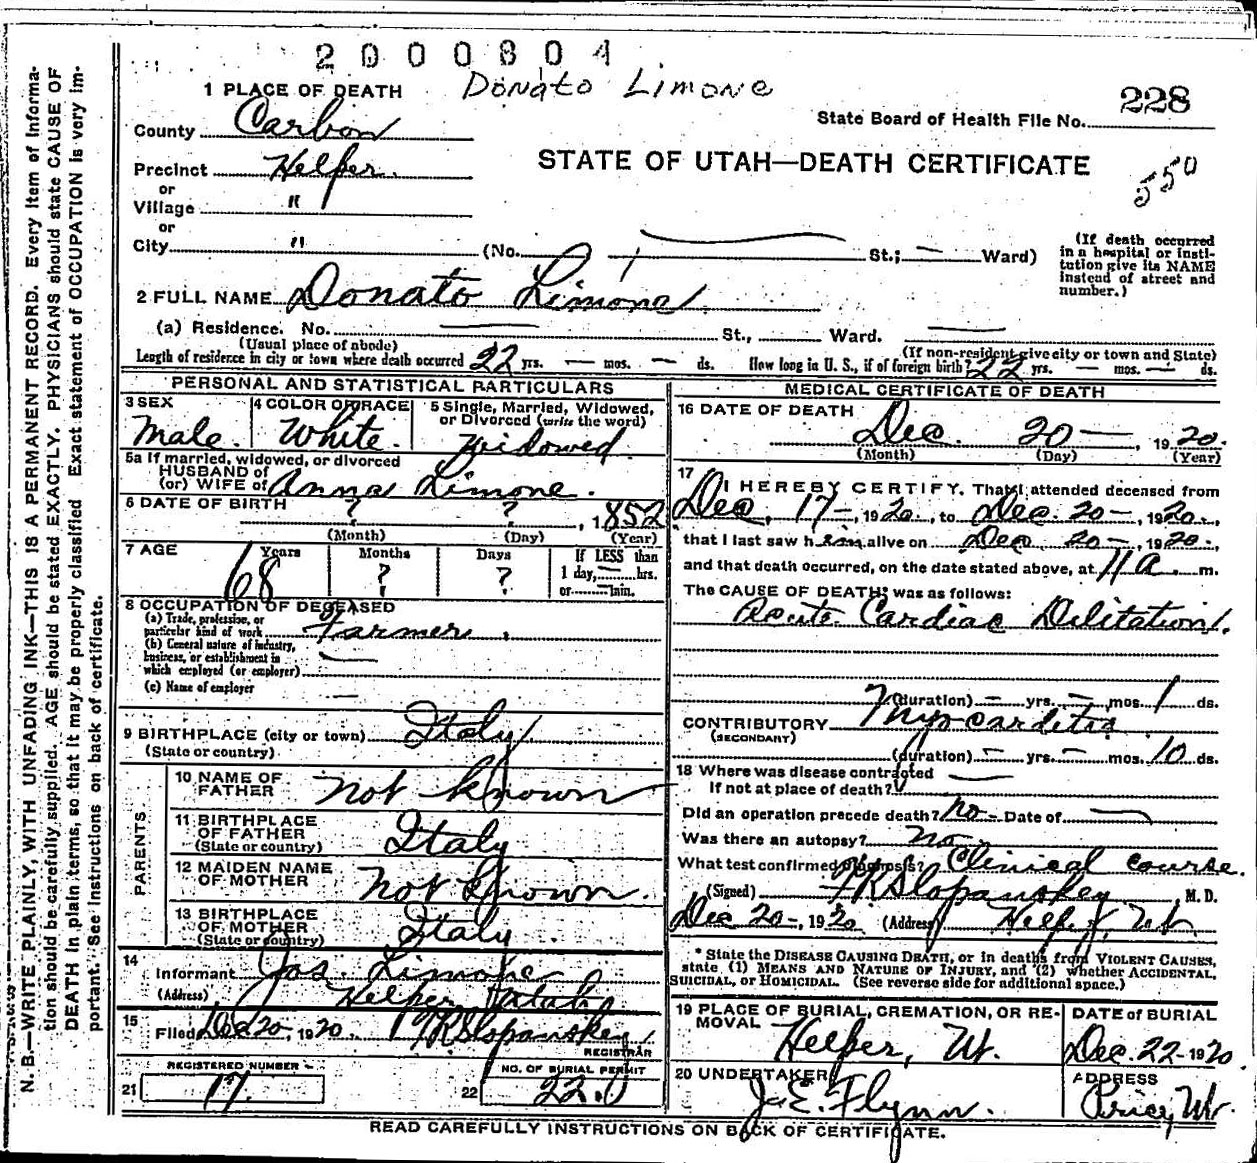 2000804
Donato Limone
1 PLACE OF DEATH
228
State Board of Health File No.
County Carbon
STATE OF UTAH—DEATH CERTIFICATE
550
Precinct Helper.
or
Village "
or
City "
(No. St.; — Ward)
(If death occurred in a hospital or institution give its NAME instead of street and number.)
2 FULL NAME Donato Limone
(a) Residence. No. St., Ward.
(Usual place of abode)
(If non-resident give city or town and State)
Length of residence in city or town where death occurred 22 yrs. — mos. — ds. How long in U. S., if of foreign birth? 22 yrs. — mos. — ds.
PERSONAL AND STATISTICAL PARTICULARS
3 SEX
Male.
4 COLOR OR RACE
White.
5 Single, Married, Widowed, or Divorced (write the word)
Widowed.
5a If married, widowed, or divorced
HUSBAND of
(or) WIFE of Anna Limone.
6 DATE OF BIRTH ? ? , 1852
(Month) (Day) (Year)
7 AGE
Years Months Days
68 ? ?
If LESS than
1 day, — hrs.
or min.
8 OCCUPATION OF DECEASED
(a) Trade, profession, or
particular kind of work Farmer.
(b) General nature of industry,
business, or establishment in
which employed (or employer)
(c) Name of employer —
9 BIRTHPLACE (city or town) Italy
(State or country)
PARENTS
10 NAME OF FATHER not known
11 BIRTHPLACE OF FATHER Italy
(State or country)
12 MAIDEN NAME OF MOTHER not known
13 BIRTHPLACE OF MOTHER Italy
(State or country)
14
Informant Jos. Limone
(Address) Helper, Utah
15
Filed Dec 20, 1920. Slopanskey
REGISTRAR
REGISTERED NUMBER
21 17
NO. OF BURIAL PERMIT
22 22.
MEDICAL CERTIFICATE OF DEATH
16 DATE OF DEATH
Dec. 20 —, 1920.
(Month) (Day) (Year)
17
I HEREBY CERTIFY. That I attended deceased from
Dec, 17 —, 1920., to Dec. 20 —, 1920.,
that I last saw him alive on Dec 20 —, 1920.,
and that death occurred, on the date stated above, at 11 a. m.
The CAUSE OF DEATH* was as follows:
Acute Cardiac Dilitation.
(duration) — yrs. — mos. 1 ds.
CONTRIBUTORY Myocarditis
(SECONDARY)
(duration) — yrs. — mos. 10 ds.
18 Where was disease contracted
If not at place of death?
Did an operation precede death? no — Date of —
Was there an autopsy? no
What test confirmed diagnosis? Clinical course.
(Signed) Slopanskey, M. D.
Dec 20 —, 1920 (Address) Helper, Ut
* State the DISEASE CAUSING DEATH, or in deaths from VIOLENT CAUSES,
state (1) MEANS AND NATURE OF INJURY, and (2) whether ACCIDENTAL,
SUICIDAL, or HOMICIDAL. (See reverse side for additional space.)
19 PLACE OF BURIAL, CREMATION, OR REMOVAL
Helper, Ut.
DATE of BURIAL
Dec. 22 - 1920.
20 UNDERTAKER
J. E. Flynn.
ADDRESS
Price, Ut.
READ CAREFULLY INSTRUCTIONS ON BACK OF CERTIFICATE.
N. B.—WRITE PLAINLY, WITH UNFADING INK—THIS IS A PERMANENT RECORD. Every item of Informa-
tion should be carefully supplied. AGE should be stated EXACTLY. PHYSICIANS should state CAUSE OF
DEATH in plain terms, so that it may be properly classified. Exact statement of OCCUPATION is very im-
portant. See Instructions on back of certificate.